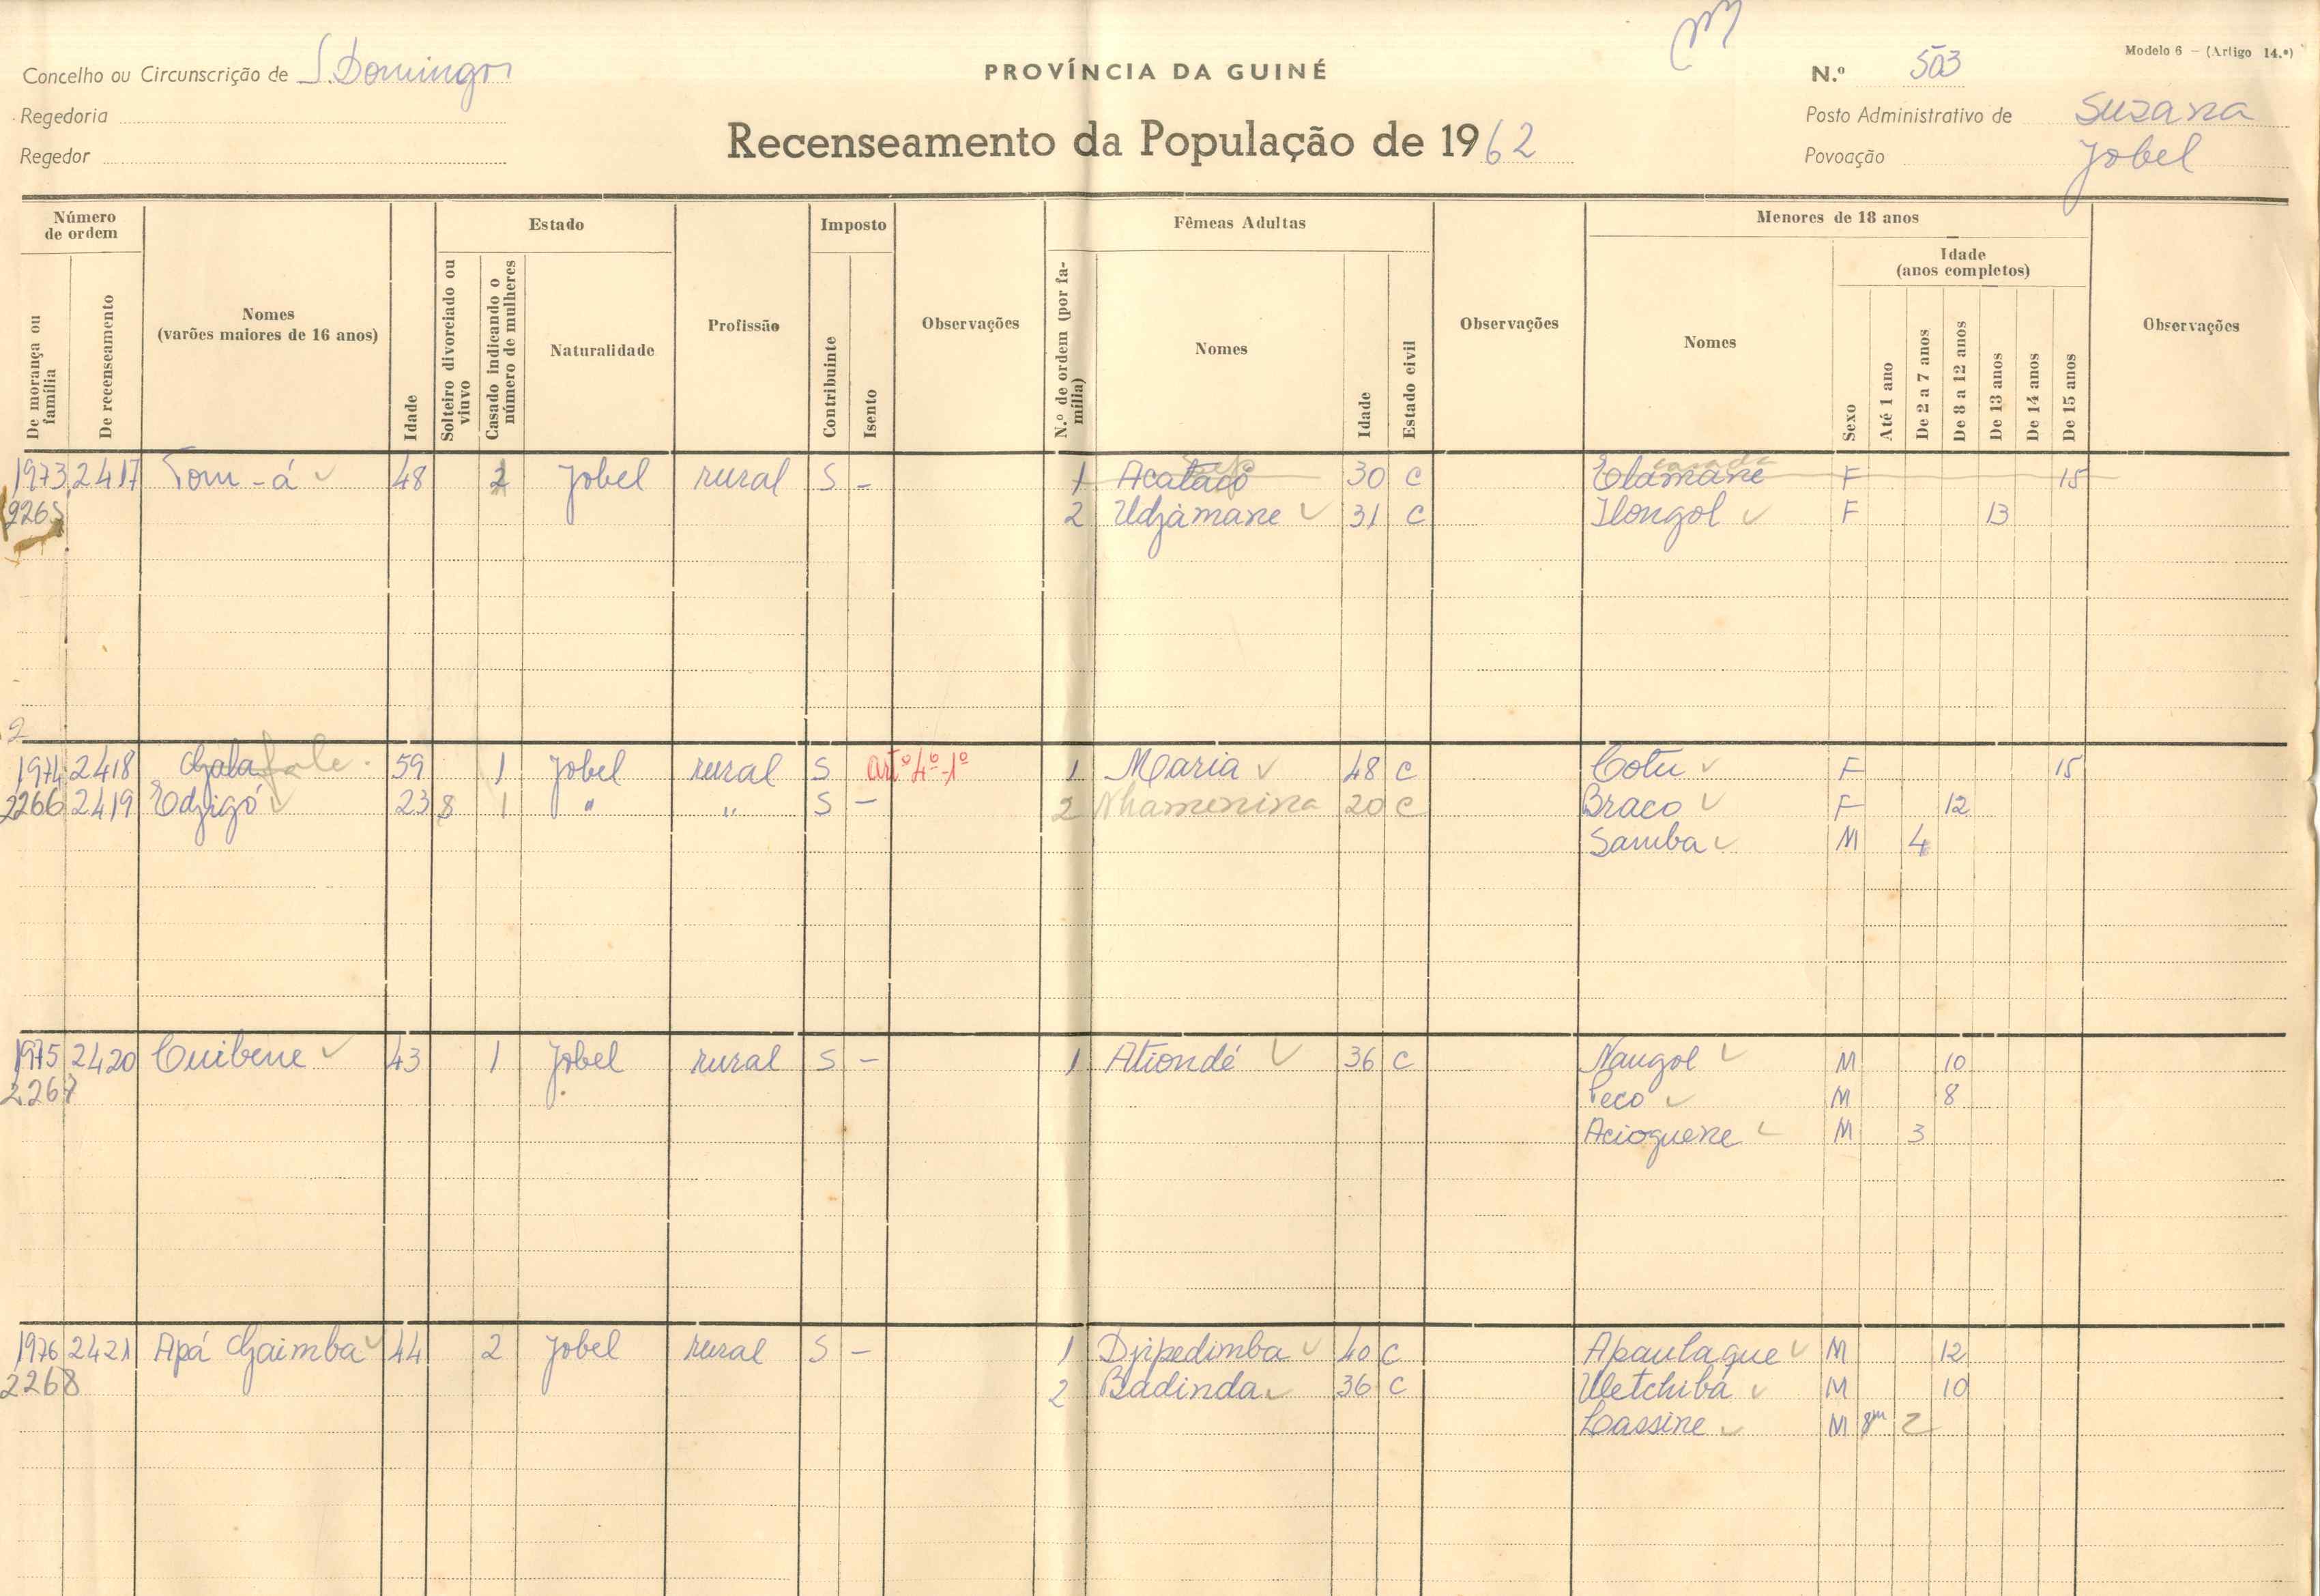 Modelo 6 — (Artigo 14.º)
Concelho ou Circunscrição de S. Domingos
PROVÍNCIA DA GUINÉ
N.º 503
Regedoria
Posto Administrativo de Suzana
Regedor
Recenseamento da População de 1962
Povoação Jobel
Número de ordem
Estado
Imposto
Fêmeas Adultas
Menores de 18 anos
Idade (anos completos)
De morança ou família
De recenseamento
Nomes (varões maiores de 16 anos)
Idade
Solteiro divorciado ou viuvo
Casado indicando o número de mulheres
Naturalidade
Profissão
Contribuinte
Isento
Observações
N.º de ordem (por família)
Nomes
Idade
Estado civil
Observações
Nomes
Sexo
Até 1 ano
De 2 a 7 anos
De 8 a 12 anos
De 13 anos
De 14 anos
De 15 anos
Observações
1973 2417 Tom-á 48 2 Jobel rural S - 1 Acataco 30 C Elamane F 15
2265 2 Udjàmane 31 C Ilongol F 13
2
1974 2418 fale 59 1 Jobel rural S artº 4º-1º 1 Maria 48 C Cotu F 15
2266 2419 Edzigó 23 8 1 " " S - 2 Nhamenina 20 C Braco F 12
Samba M 4
1975 2420 Cuibene 43 1 Jobel rural S - 1 Ationdé 36 C Naugol M 10
2267 Peco M 8
Acioguene M 3
1976 2421 Apá Gaimba 44 2 Jobel rural S - 1 Djipedimba 40 C Apaulague M 12
2268 2 Badinda 36 C Uletchiba M 10
Lassine M 8m 2